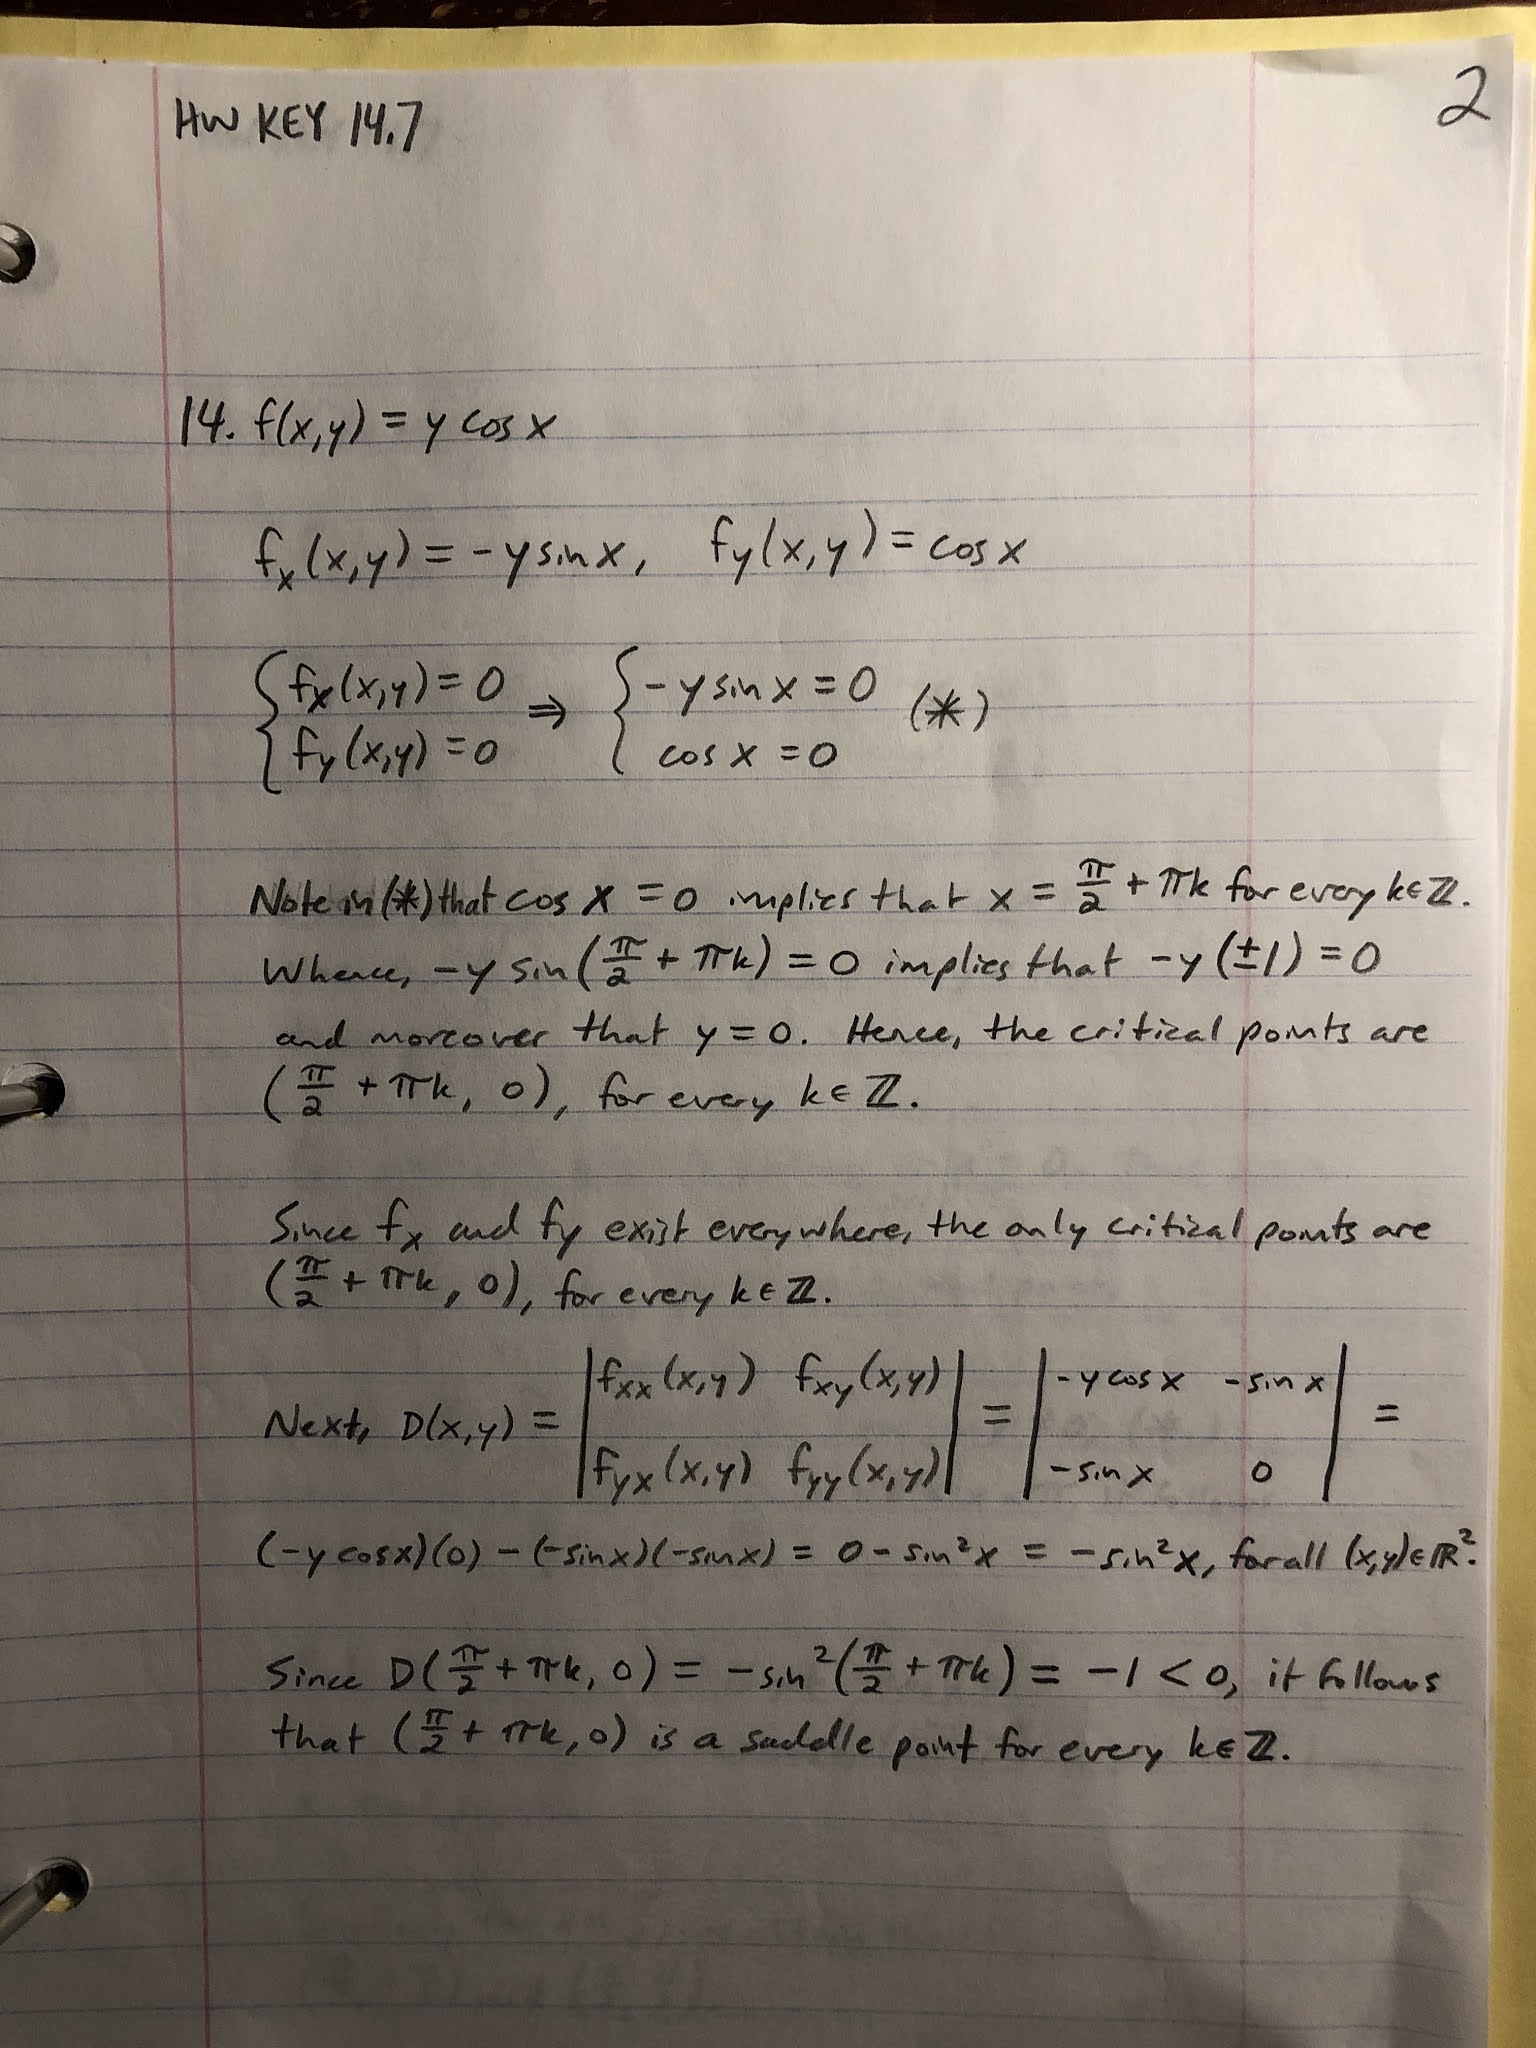 HW KEY 14.7
2
14. f(x,y) = y cos x
fx(x,y) = -y sin x, fy(x,y) = cos x
{fx(x,y) = 0 ⇒ {-y sin x = 0 (*)
fy(x,y) = 0 cos x = 0
Note in (*) that cos x = 0 implies that x = π/2 + πk for every k∈ℤ.
Whence, -y sin(π/2 + πk) = 0 implies that -y(±1) = 0
and moreover that y = 0. Hence, the critical points are
(π/2 + πk, 0), for every k∈ℤ.
Since fx and fy exist everywhere, the only critical points are
(π/2 + πk, 0), for every k∈ℤ.
Next, D(x,y) = |fxx(x,y) fxy(x,y)| = |-y cos x -sin x| =
|fyx(x,y) fyy(x,y)| |-sin x 0|
(-y cos x)(0) - (-sin x)(-sin x) = 0 - sin²x = -sin²x, for all (x,y)∈ℝ².
Since D(π/2 + πk, 0) = -sin²(π/2 + πk) = -1 < 0, it follows
that (π/2 + πk, 0) is a saddle point for every k∈ℤ.